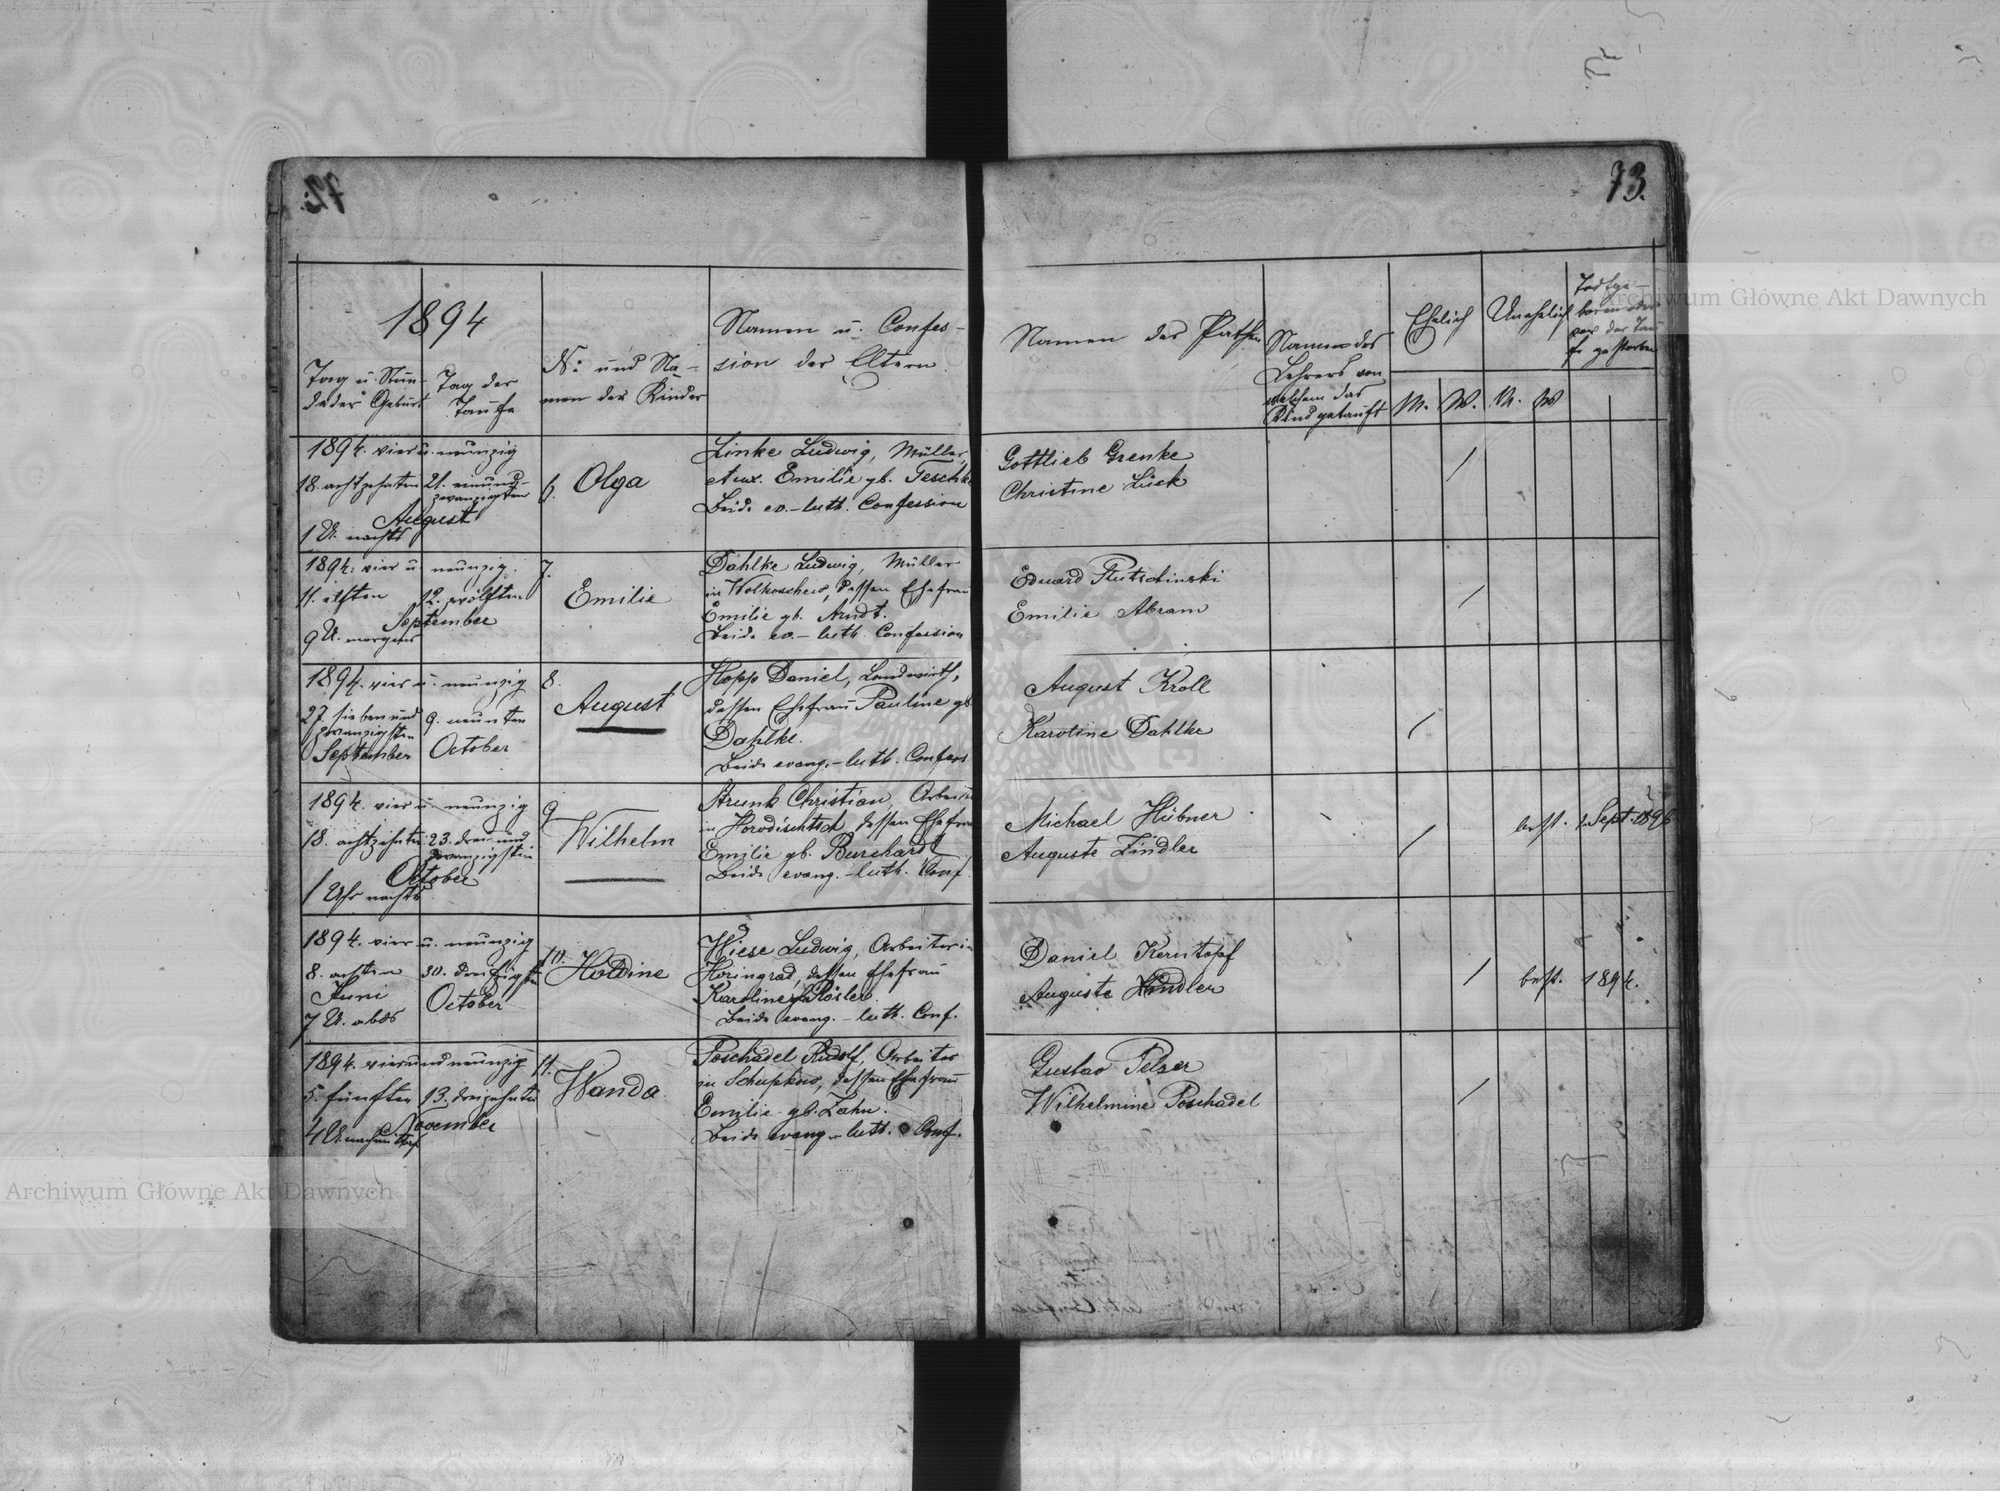 72.
1894
Tag u. Stun-
de der Geburt
Tag der
Taufe
N: und Na-
men der Kinder
Namen u. Confes-
sion der Eltern.
1894. vier u. neunzig
18. achtzehnten
21. einund-
zwanzigsten
August
1 U. nachts
6. Olga
Linke Ludwig, Müller,
Aux. Emilie gb. Teschke
Beide ev.-luth. Confession
1894. vier u neunzig.
11. elften
12. zwölften
September
9 U. morgens
7.
Emilie
Dahlke Ludwig, Müller
in Wolkoschew, dessen Ehefrau
Emilie gb. Arndt.
Beide ev.-luth Confession
1894. vier u. neunzig
27. sieben und
zwanzigsten
September
9. neunten
October
8.
August
Hopp Daniel, Landwirth,
dessen Ehefrau Pauline gb
Dahlke.
Beide evang.-luth. Confess
1894. vier u. neunzig
18. achtzehnten
23. drei und
zwanzigsten
October
1 Uhr nachts
9
Wilhelm
Strunk Christian, Arbeiter
in Horodischtsch, dessen Ehefrau
Emilie gb. Burchardt
Beide evang.-luth. Conf.
1894. vier u. neunzig
8. achten
Juni
7 U. abds
30. dreißigsten
October
10.
Holdine
Wiese Ludwig, Arbeiter in
Horingrad, dessen Ehefrau
Karoline gb. Rösler.
Beide evang.-luth. Conf.
1894. vierundneunzig
5. fünften
13. dreizehnten
November
4 U. nachmittags
11.
Wanda
Poschadel Rudolf, Arbeiter
in Schupkow, dessen Ehefrau
Emilie gb. Zahn.
Beide evang-luth. Conf.
73.
Namen der Pathen
Namen des
Lehrers von
welchem das
Kind getauft
Ehelich
Unehelich
Todtge-
boren oder
vor der Tau-
fe gestorben
M. W. M. W
Gottlieb Grenke
Christine Lück
Eduard Rutschinski
Emilie Abram
August Kroll
Karoline Dahlke
Michael Hübner
Auguste Zindler
best. 1. Sept. 1896
Daniel Kerntopf
Auguste Zindler
best. 1894.
Gustav Pelzer
Wilhelmine Poschadel
Archiwum Główne Akt Dawnych
Archiwum Główne Akt Dawnych